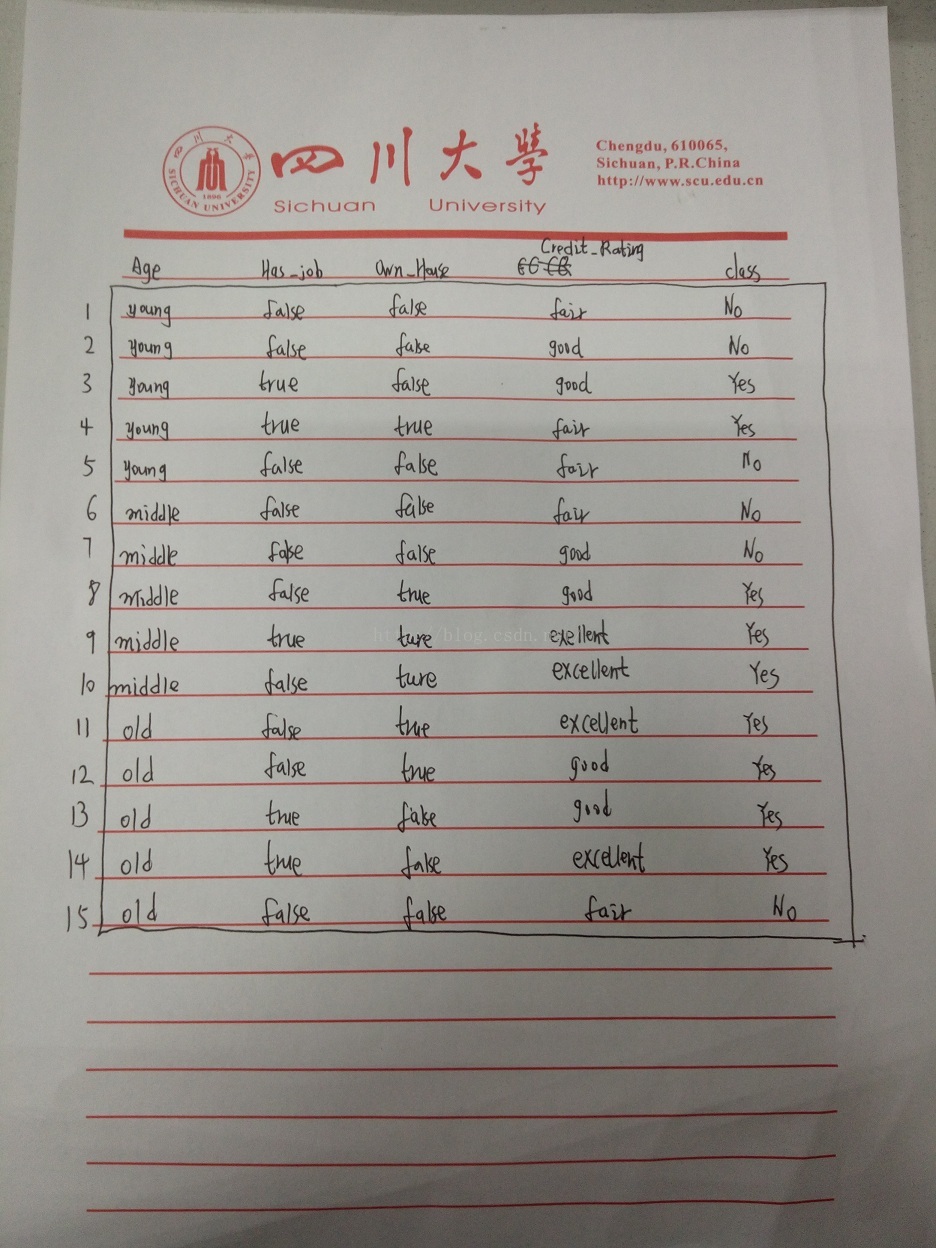 四川大學
Sichuan University
SICHUAN UNIVERSITY
1896
Chengdu, 610065,
Sichuan, P.R.China
http://www.scu.edu.cn
Credit_Rating
Age Has_job Own_House class
1 young false false fair No
2 young false false good No
3 young true false good Yes
4 young true true fair Yes
5 young false false fair No
6 middle false false fair No
7 middle false false good No
8 middle false true good Yes
9 middle true ture exellent Yes
10 middle false ture excellent Yes
11 old false true excellent Yes
12 old false true good Yes
13 old true false good Yes
14 old true false excellent Yes
15 old false false fair No